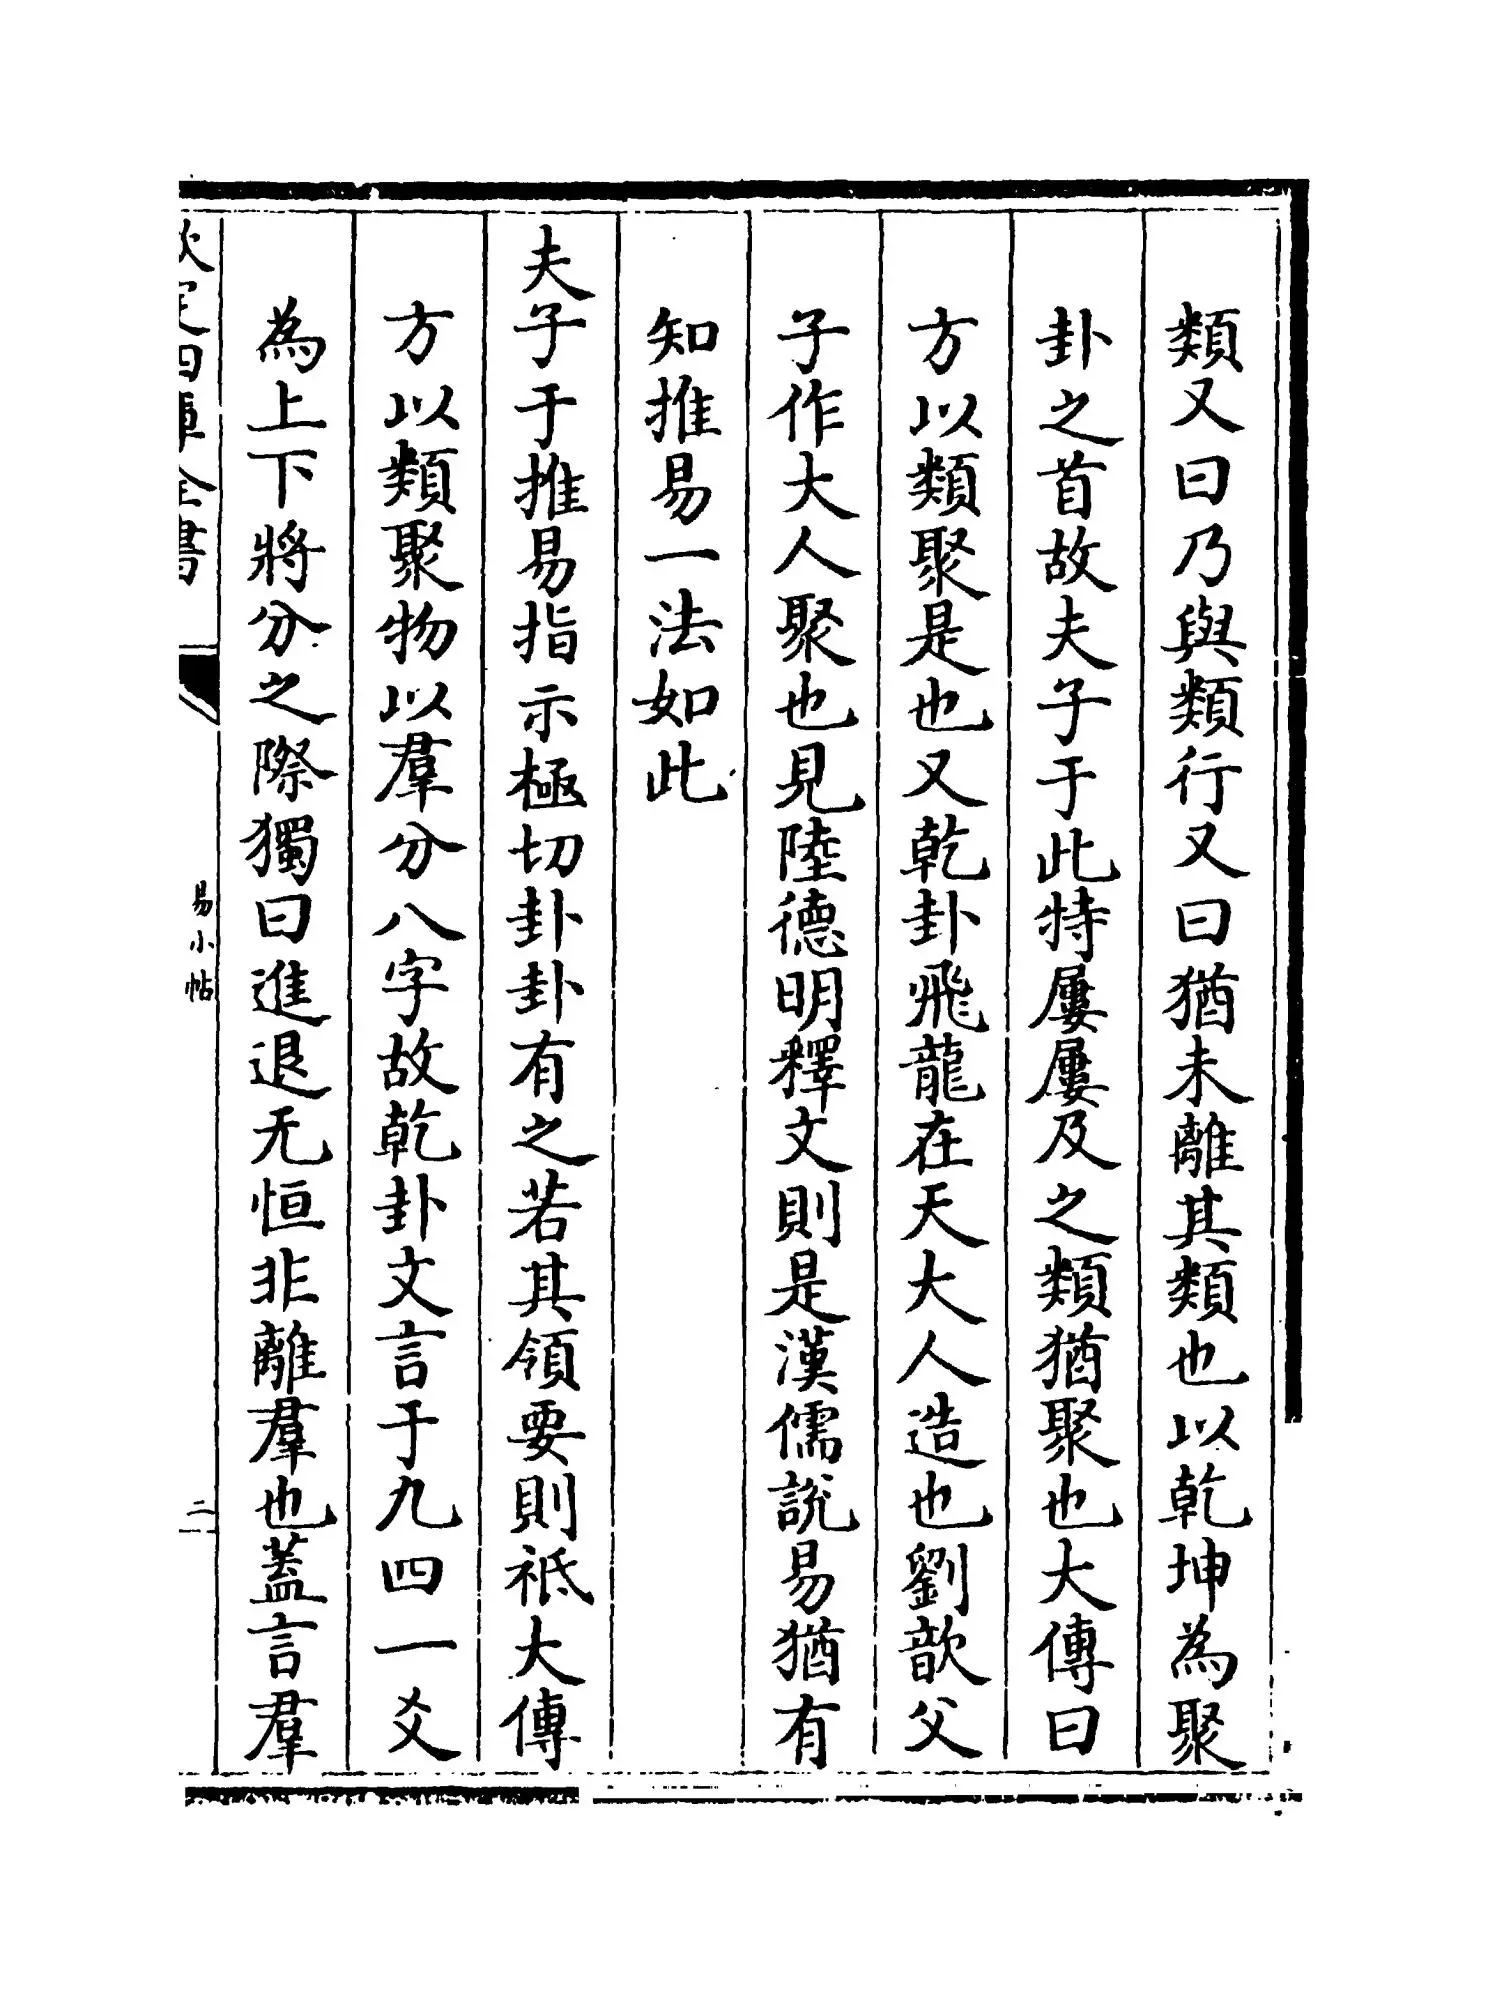 類又曰乃與類行又曰猶未離其類也以乾坤為聚
卦之首故夫子于此特屢屢及之類猶聚也大傳曰
方以類聚是也又乾卦飛龍在天大人造也劉歆父
子作大人聚也見陸德明釋文則是漢儒說易猶有
知推易一法如此
夫子于推易指示極切卦卦有之若其領要則祗大傳
方以類聚物以羣分八字故乾卦文言于九四一爻
為上下將分之際獨曰進退无恒非離羣也蓋言羣
欽定四庫全書
易小帖
二